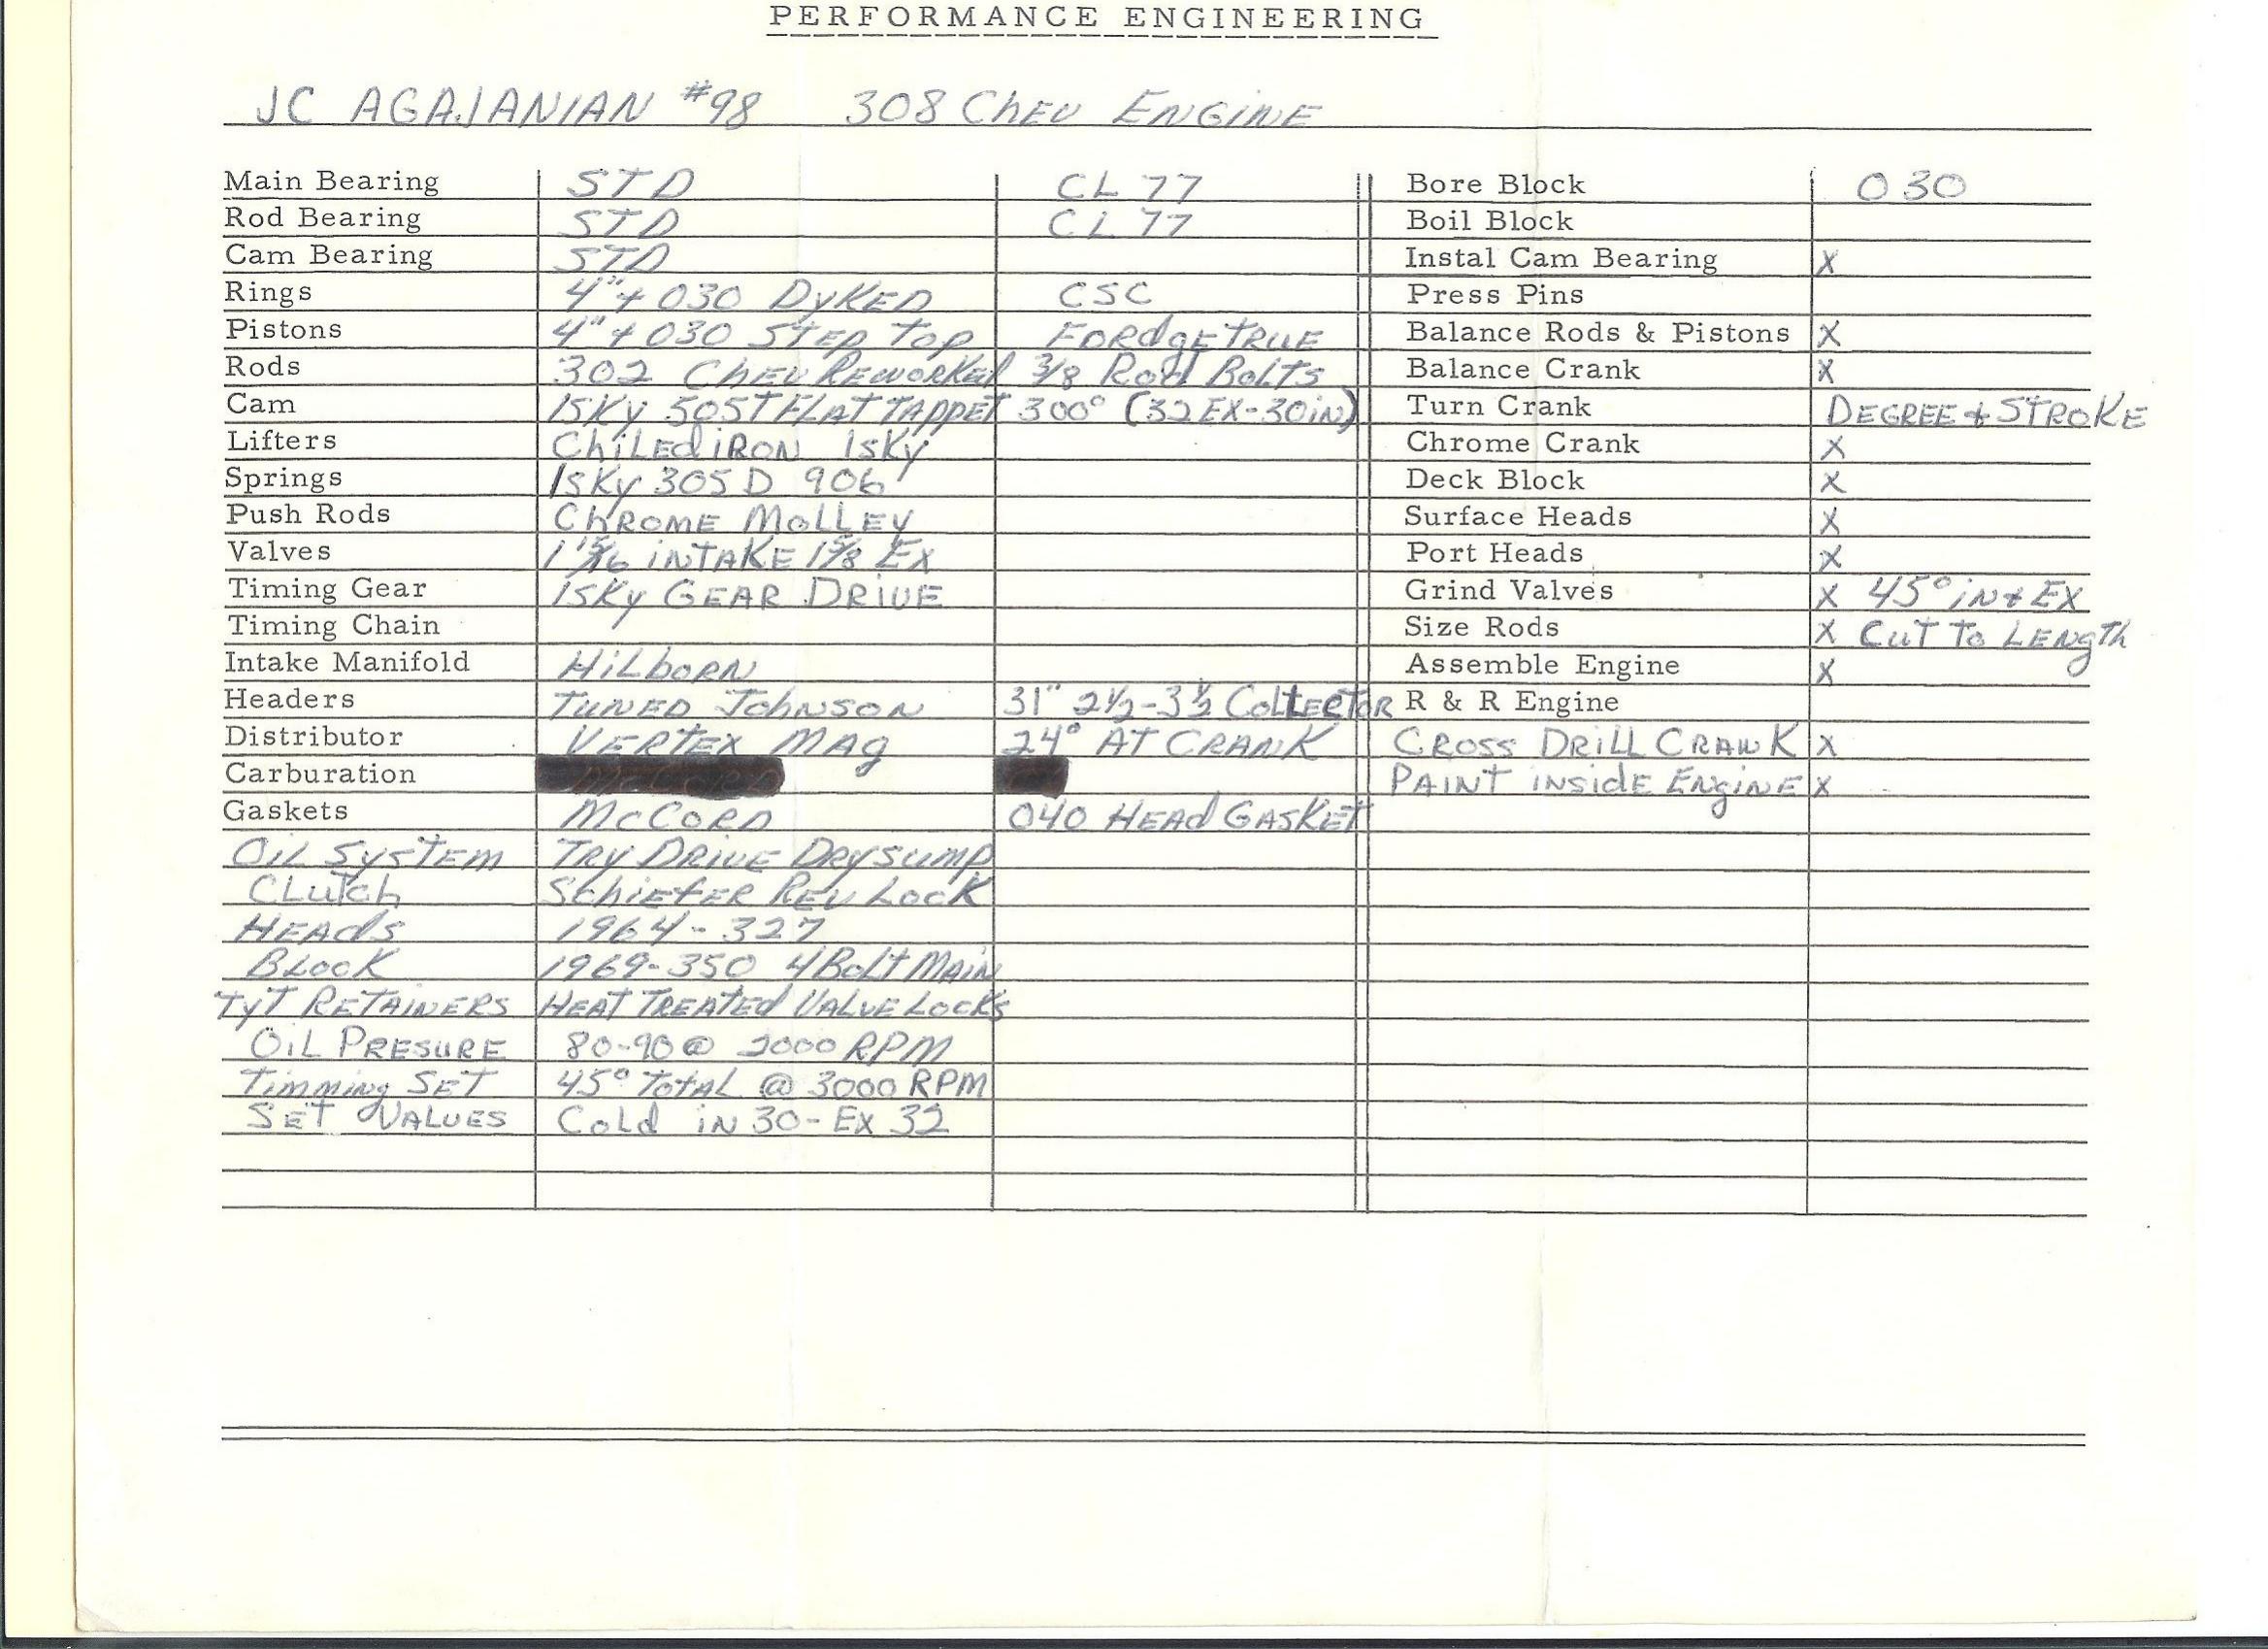 PERFORMANCE ENGINEERING
JC AGAJANIAN #98 308 ChEV ENGiNE
Main Bearing STD CL 77 Bore Block 030
Rod Bearing STD CL 77 Boil Block
Cam Bearing STD Instal Cam Bearing X
Rings 4"+030 DyKED CSC Press Pins
Pistons 4"+030 STEP Top FORdgETRUE Balance Rods & Pistons X
Rods 302 ChEV REWORKEd 3/8 Rod BoLTS Balance Crank X
Cam ISKy 505T FLAT TAPPET 300° (32 EX-30iN) Turn Crank DEGREE & STROKE
Lifters ChiLEd iRON ISKy Chrome Crank X
Springs ISKy 305 D 906 Deck Block X
Push Rods ChROME MoLLEY Surface Heads X
Valves 1 15/16 iNTAKE 1 5/8 EX Port Heads X
Timing Gear ISKy GEAR DRIVE Grind Valves X 45° iN & EX
Timing Chain Size Rods X CuT To LENgTh
Intake Manifold HiLboRN Assemble Engine X
Headers TUNED JohNSON 31" 2½-3½ CoLLECToR R & R Engine
Distributor VERTEX MAg 24° AT CRANK CROSS DRiLL CRANK X
Carburation PAINT iNSidE ENgiNE X
Gaskets McCORD 040 HEAd GASKET
OiL SySTEM TRY DRIVE DRySUMP
CLuTch SchiEfER REV LocK
HEAdS 1964-327
BLocK 1969-350 4 BoLT MAiN
TyT RETAiNERS HEAT TREATEd VALVE LocKS
OiL PRESURE 80-90 @ 2000 RPM
TimmiNg SET 45° ToTAL @ 3000 RPM
SET VALVES CoLd iN 30-EX 32